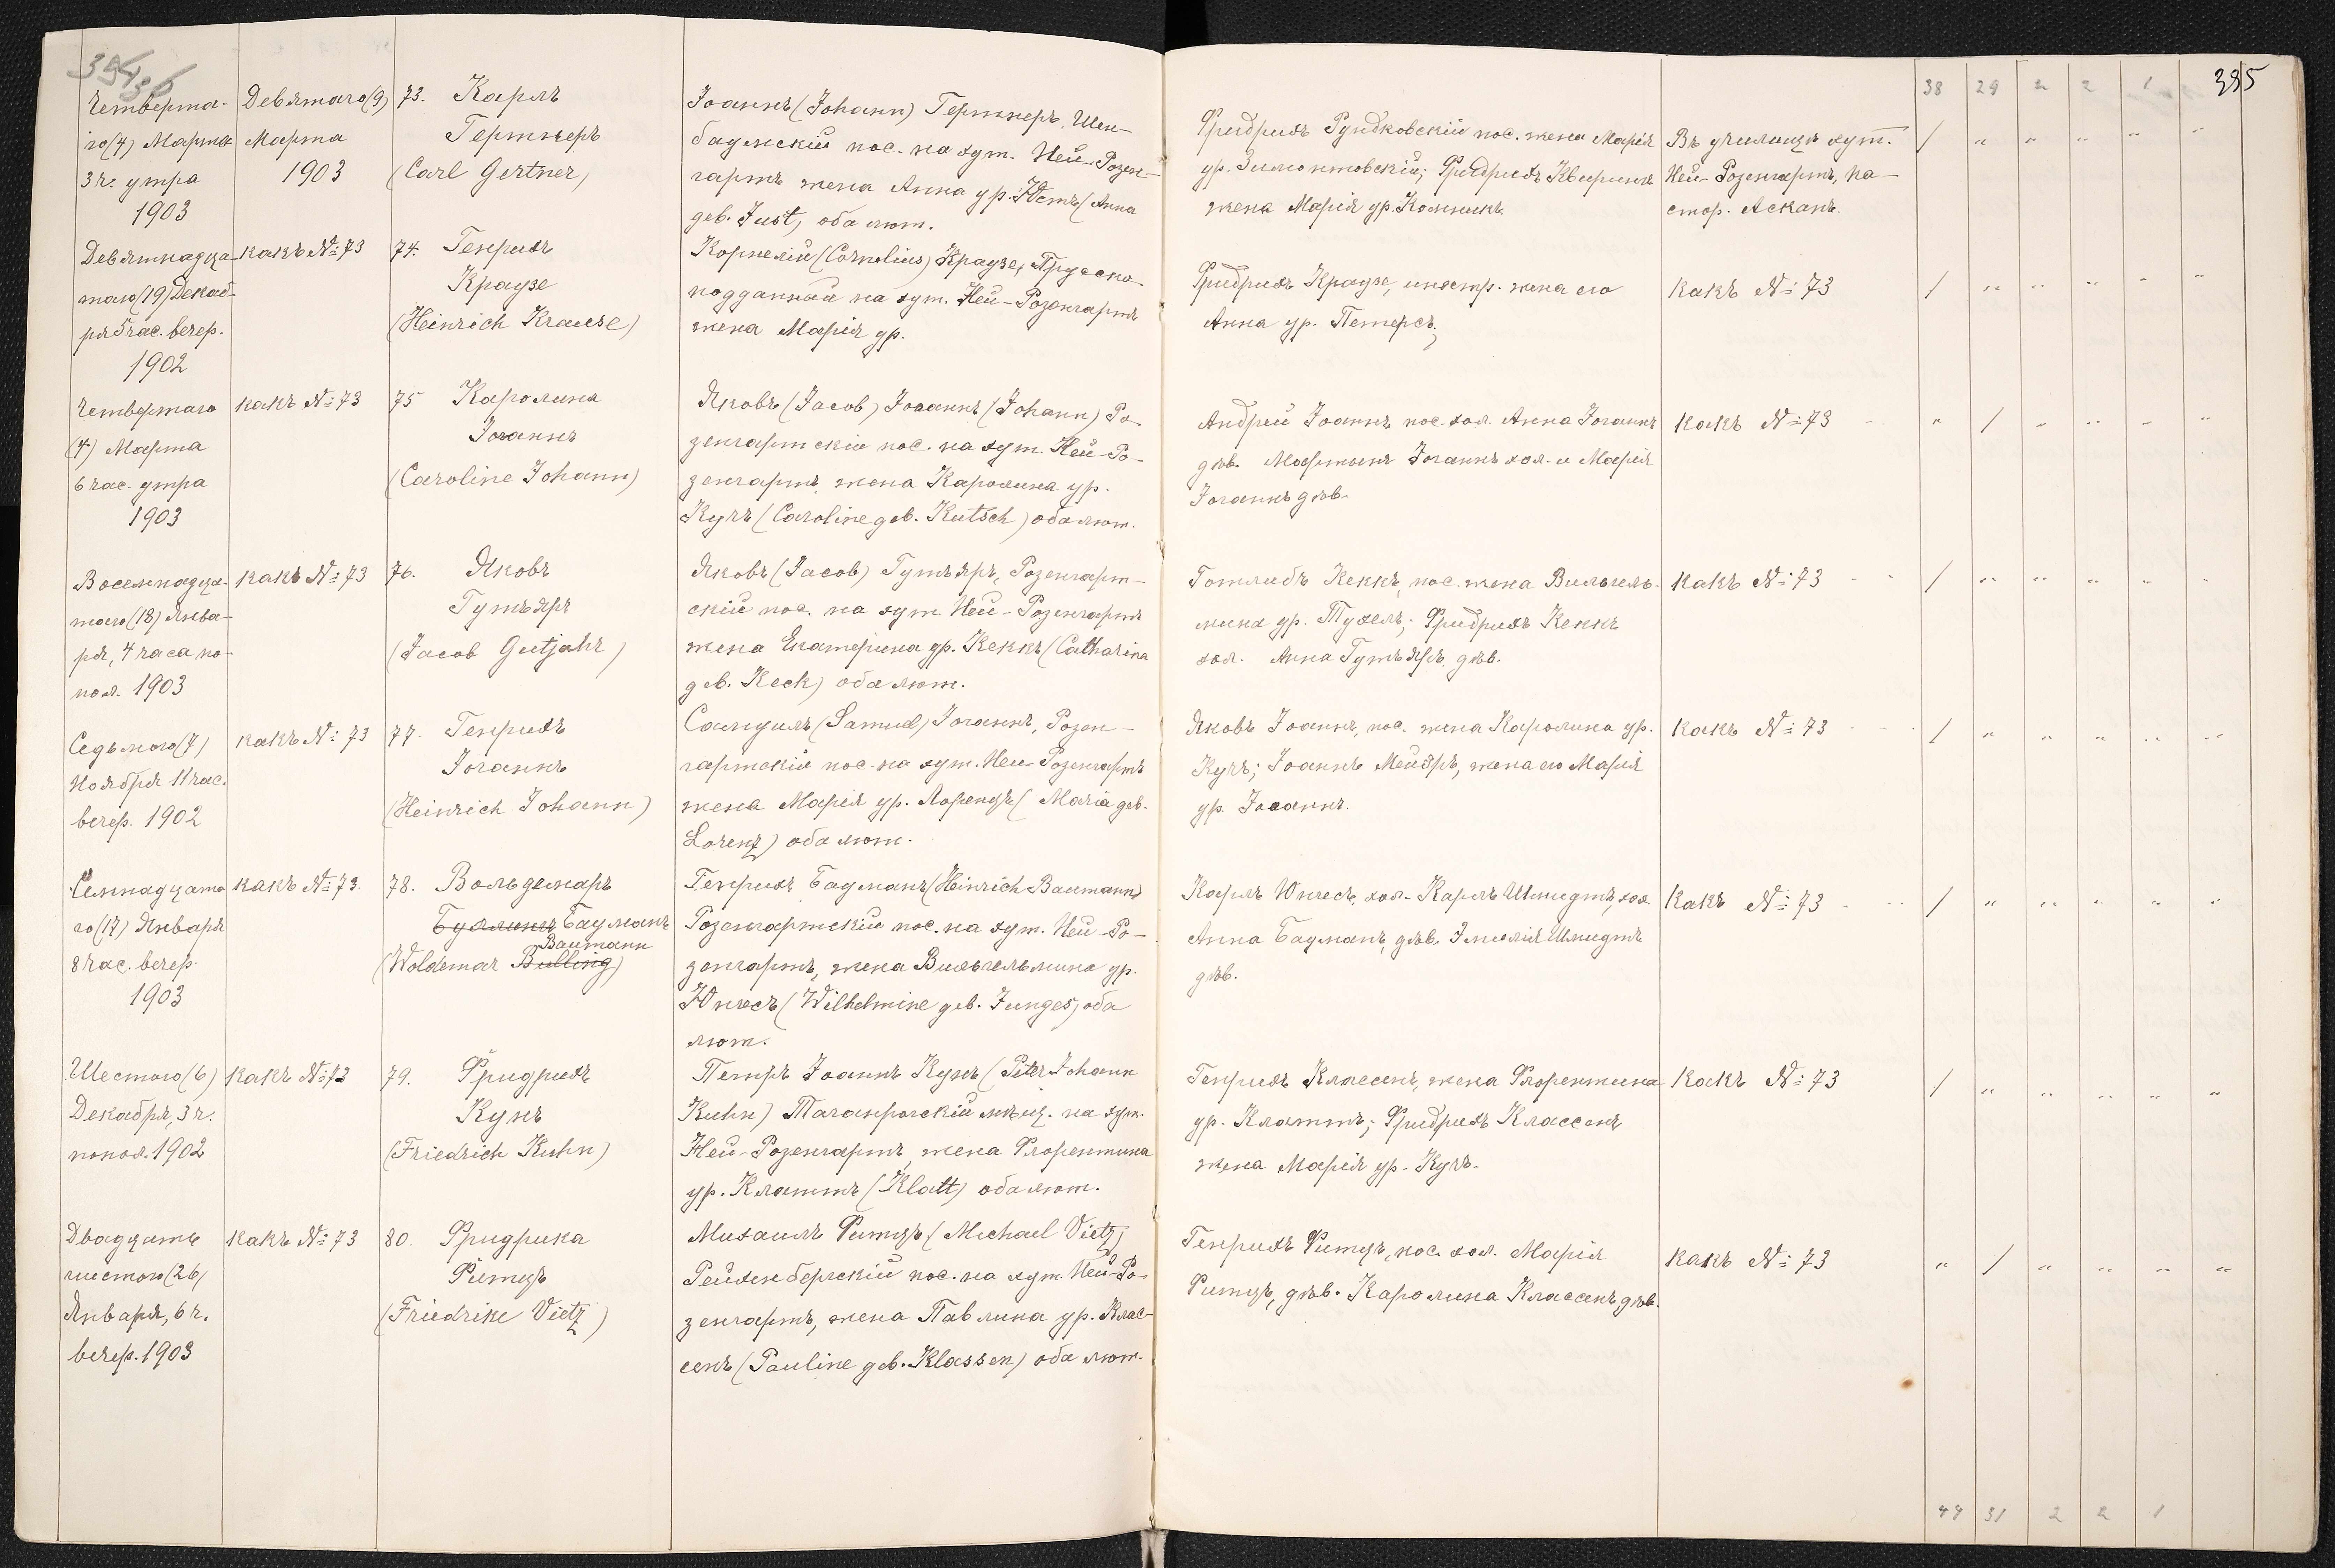 385
38 29 2 2 1
Четверта-
го (4) Марта
3 ч. утра
1903
Девятаго (9)
Марта
1903
73. Карлъ
Гертнеръ
(Carl Gertner)
Іоаннъ (Johann) Гертнеръ, Шен-
баумскій пос. на хут. Ней-Розен-
гартъ жена Анна ур. Юстъ (Anna
geb. Just) оба лют.
Фридрихъ Рундковскій пос. жена Марія
ур. Зимонтовскій; Фридрихъ Квиринъ
жена Марія ур. Комникъ.
Въ училищѣ хут.
Ней-Розенгартъ, па-
стор. Асканъ.
/ " " " " "
Девятнадца-
таго (19) Декаб-
ря 5 час. вечер.
1902
какъ № 73
74. Генрихъ
Краузе
(Heinrich Krause)
Корнелій (Cornelius) Краузе, Прусско-
подданный на хут. Ней-Розенгартъ
жена Марія ур.
Фридрихъ Краузе, иностр. жена его
Анна ур. Петерсъ;
какъ № 73
/ " " " " "
Четвертаго
(4) Марта
6 час. утра
1903
какъ № 73
75 Каролина
Іоганнъ
(Caroline Johann)
Яковъ (Jacob) Іоганнъ (Johann) Ро-
зенгартскій пос. на хут. Ней-Ро-
зенгартъ, жена Каролина ур.
Кучъ (Caroline geb. Kutsch) оба лют.
Андрей Іоаннъ пос. хол. Анна Іоганнъ
дѣв. Мартынъ Іоганнъ хол. и Марія
Іоганнъ дѣв.
какъ № 73
" / " " " "
Восемнадца-
таго (18) Янва-
ря, 4 часа по-
пол. 1903
какъ № 73
76. Яковъ
Гутъяръ
(Jacob Gutjahr)
Яковъ (Jacob) Гутъяръ, Розенгарт-
скій пос. на хут Ней-Розенгартъ
жена Екатерина ур. Кеккъ (Catharina
geb. Keck) оба лют.
Готлибъ Кеккъ, пос. жена Вильгель-
мина ур. Тухель; Фридрихъ Кеккъ
хол. Анна Гутъяръ, дѣв.
какъ № 73
/ " " " " "
Седьмого (7)
Ноября 11 час.
вечер. 1902
какъ № 73
77. Генрихъ
Іоганнъ
(Heinrich Johann)
Самуилъ (Samuel) Іоганнъ, Розен-
гартскій пос. на хут. Ней-Розенгартъ
жена Марія ур. Лоренцъ (Maria geb.
Lorenz) оба лют.
Яковъ Іоаннъ, пос. жена Каролина ур.
Кучъ; Іоаннъ Мейэръ, жена его Марія
ур. Іоганнъ.
какъ № 73
/ " " " " "
Семнадцата
го (17) Января
8 час. вечер.
1903
какъ № 73.
78. Вольдемаръ
Буллингъ Бауманъ
Baumann
(Woldemar Bulling)
Генрихъ Бауманъ (Heinrich Baumann)
Розенгартскій пос. на хут. Ней-Ро-
зенгартъ, жена Вильгельмина ур.
Юнгесъ (Wilhelmine geb. Junges) оба
лют.
Карлъ Юнгесъ, хол. Карлъ Шмидтъ, хол.
Анна Бауманъ, дѣв. Эмилія Шмидтъ
дѣв.
какъ № 73
/ " " " " "
Шестого (6)
Декабря, 3 ч.
попол. 1902
какъ № 73
79. Фридрихъ
Кунъ
(Friedrich Kuhn)
Петръ Іоаннъ Кунъ (Peter Johann
Kuhn) Таганрогскій мѣщ. на хут.
Ней-Розенгартъ, жена Флорентина
ур. Клаттъ (Klatt) оба лют.
Генрихъ Классенъ, жена Флорентина
ур. Клаттъ; Фридрихъ Классенъ
жена Марія ур. Кучъ.
какъ № 73
/ " " " " "
Двадцать
шестого (26)
Января, 6 ч.
вечер. 1903
какъ № 73
80. Фридрика
Фитцъ
(Friedrike Vietz)
Михаилъ Фитцъ (Michael Vietz)
Рейхенбергскій пос. на хут. Ней-Ро-
зенгартъ, жена Павлина ур. Клас-
сенъ (Pauline geb. Klassen) оба лют.
Генрихъ Фитцъ, пос. хол. Марія
Фитцъ, дѣв. Каролина Классенъ, дѣв.
какъ № 73
" / " " " "
44 31 2 2 1